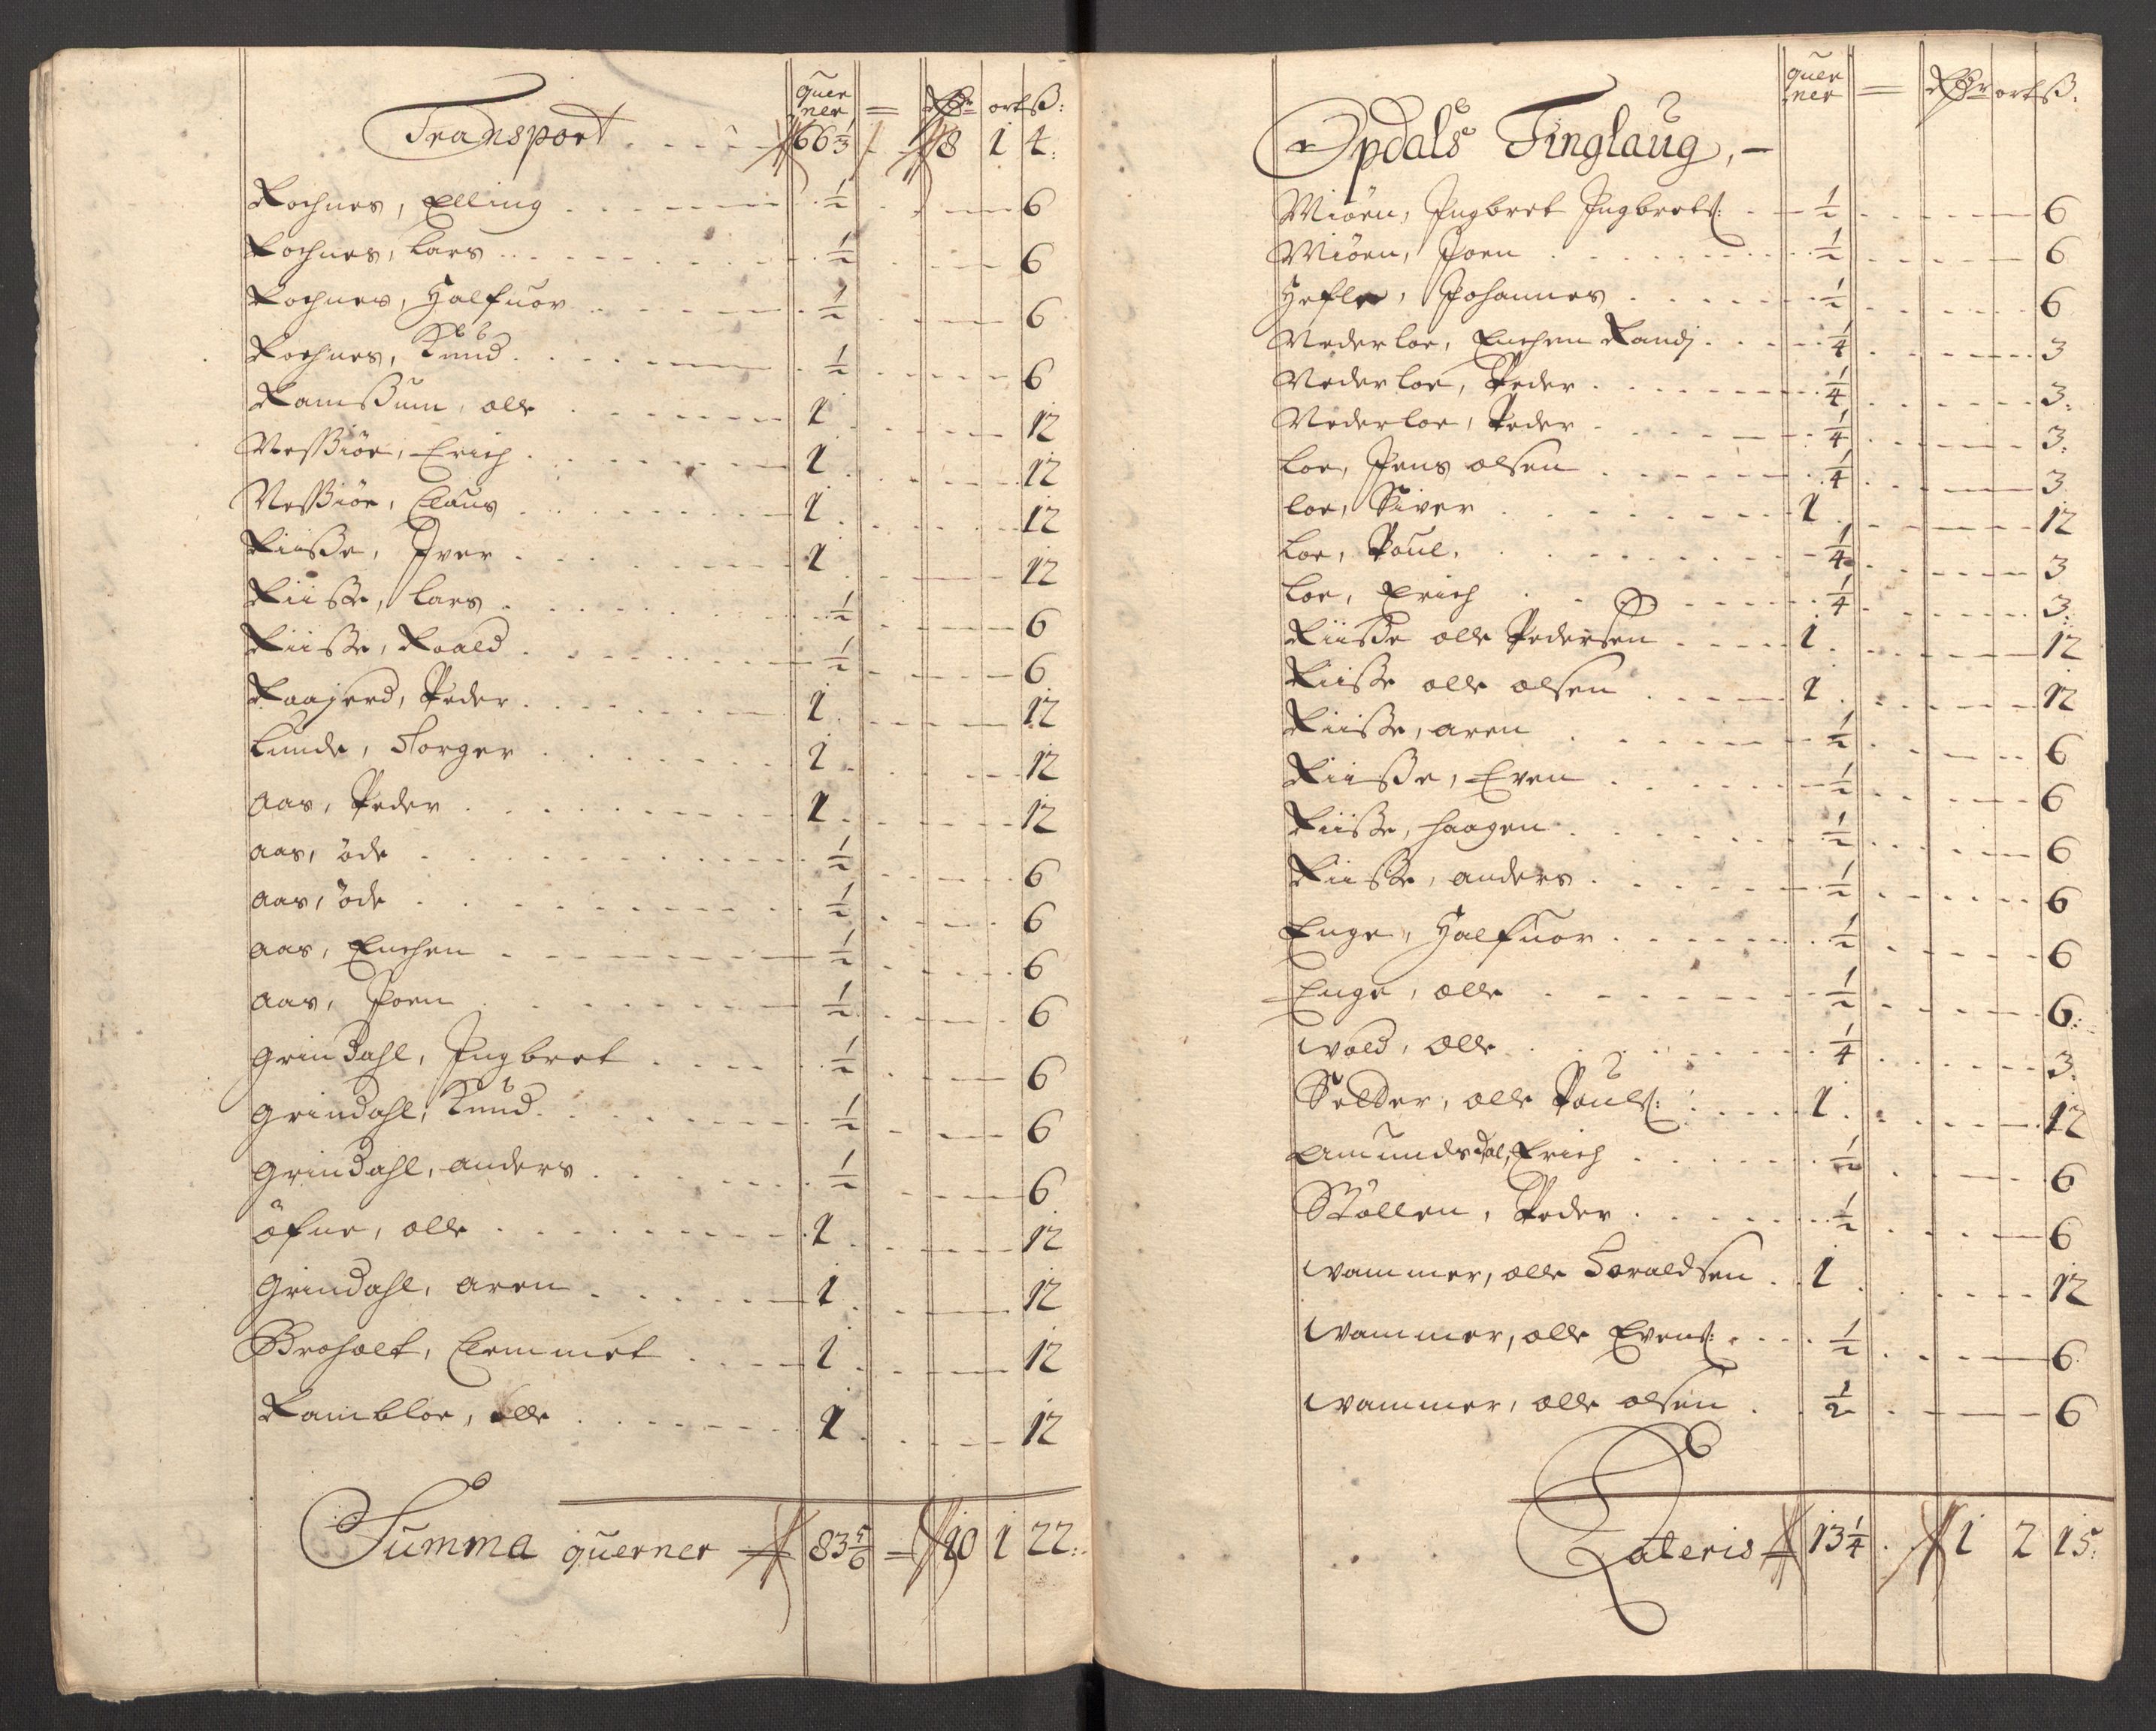 quer
ner = Rdr ort ß:
Transport 66 1/3 8 1 4:
Rochnes, Elling 1/2 6
Rochnes, Lars 1/2 6
Rochnes, Halfuor 1/2 6
Rochnes, Knud 1/2 6
Ramßum, olle 1 12
Vessiöe, Erich 1 12
Vessiöe, Claus 1 12
Riisße, Iver 1 12
Riisße, Lars 1/2 6
Riisße, Roald 1/2 6
Raagerd, Peder 1 12
Lunde, Torger 1 12
Aas, Peder 1 12
Aas, öde 1/2 6
Aas, öde 1/2 6
Aas, Enchen 1/2 6
Aas, Joen 1/2 6
Grindahl, Ingbret 1/2 6
Grindahl, Knud 1/2 6
Grindahl, anders 1/2 6
öfne, olle 1 12
Grindahl, aren 1 12
Broholt, Clemmet 1 12
Rambloe, olle 1 12
Summa querner 83 5/6 = 10 1 22:
quer
ner = Rdr ort ß.
Opdals Tinglaug,
Miöen, Ingbret Ingbretß: 1/2 6
Miöen, Joen 1/2 6
Hefle, Johannes 1/2 6
Nederloe, Enchen Randj 1/4 3
Nederloe, Peder 1/4 3:
Nederloe, Peder 1/4 3:
Loe, Jens olsen 1/4 3
Loe, Siver 1 12
Loe, Poul 1/4 3
Loe, Erich 1/4 3:
Riisße olle Pedersen 1 12
Riisße olle olsen 1 12
Riisße, aren 1/2 6
Riisße, Even 1/2 6
Riisße, haagen 1/2 6
Riisße, anders 1/2 6
Enge, Halfuor 1/2 6
Enge, olle 1/2 6:
Wold, olle 1/4 3.
Sedder, olle Poulß: 1 12
Amundsdal, Erich 1/2 6
Stöllen, Peder 1/2 6
Wammer, olle Haraldsen 1 12
Wammer, olle Evenß: 1/2 6
Wammer, olle olsen 1/2 6
Lateris 13 1/4 1 2 15: